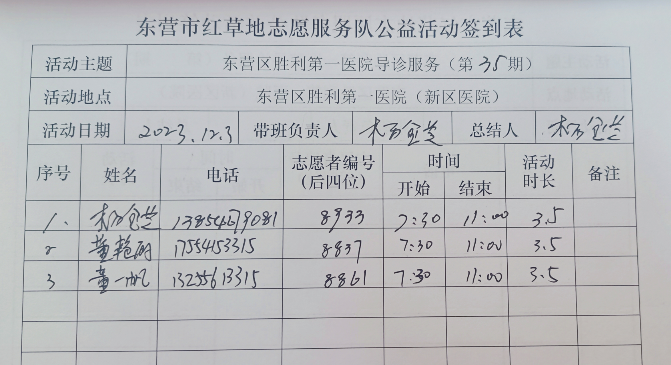 东营市红草地志愿服务队公益活动签到表
活动主题 东营区胜利第一医院导诊服务（第35期）
活动地点 东营区胜利第一医院（新区医院）
活动日期 2023.12.3 带班负责人 杨金芝 总结人 杨金芝
序号 姓名 电话 志愿者编号（后四位） 时间 开始 结束 活动时长 备注
1. 杨金芝 13854679081 8933 7:30 11:00 3.5
2 董艳丽 17554153315 8837 7:30 11:00 3.5
3 董一帆 13255613315 8861 7:30 11:00 3.5